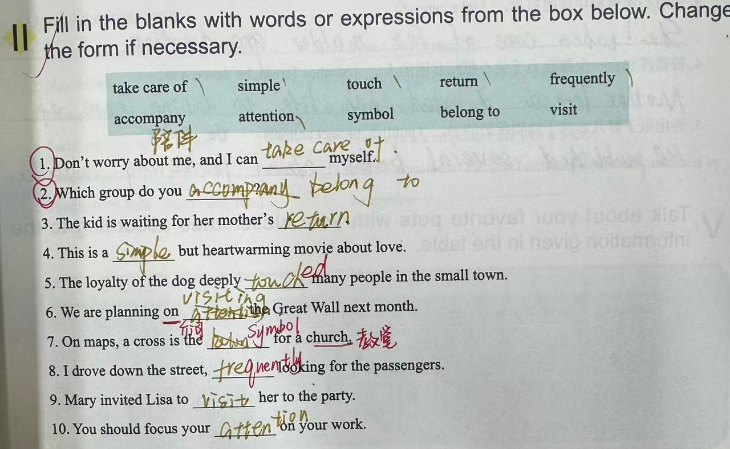 II Fill in the blanks with words or expressions from the box below. Change
the form if necessary.
take care of simple touch return frequently
accompany attention symbol belong to visit
陪伴
1. Don't worry about me, and I can take care of myself.
2. Which group do you accompany belong to
3. The kid is waiting for her mother's return
4. This is a simple but heartwarming movie about love.
5. The loyalty of the dog deeply touched many people in the small town.
visiting
6. We are planning on the Great Wall next month.
symbol
7. On maps, a cross is the for a church. 教堂
8. I drove down the street, frequently looking for the passengers.
9. Mary invited Lisa to visit her to the party.
10. You should focus your attention on your work.